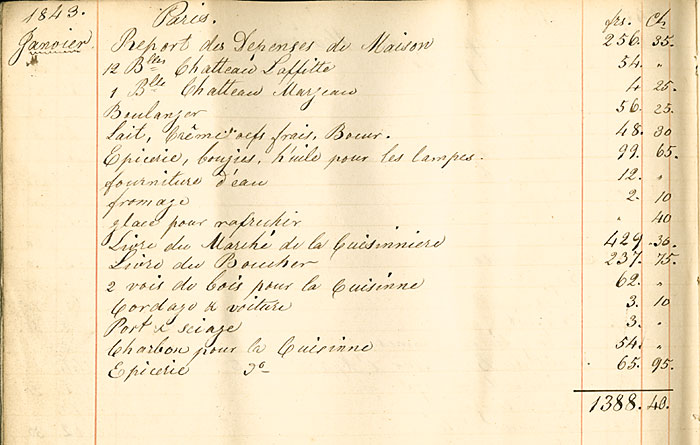 1843. Paris. frs. Cts
Janvier. Report des Depenses de Maison 256. 35.
12 Blles Chatteau Laffitte 54. "
1 Blle Chatteau Margeau 4 25.
Boulanger 56. 25
Lait, Crême oefs frais, Boeur. 48. 80
Epicerie, boujies, h'uile pour les lampes. 99. 65.
fourniture d'eau 12. "
fromage 2. 10
glace pour rafrechir " 40
Livre du Marché de la Cuisinniere 429. 30.
Livre du Boucher 237. 75.
2 vois de bois pour la Cuisinne 62. "
Cordage & voiture 3. 10
Port & sciage 3. "
Charbon pour la Cuisinne 54. "
Epicerie do 65. 95.
1388. 40.